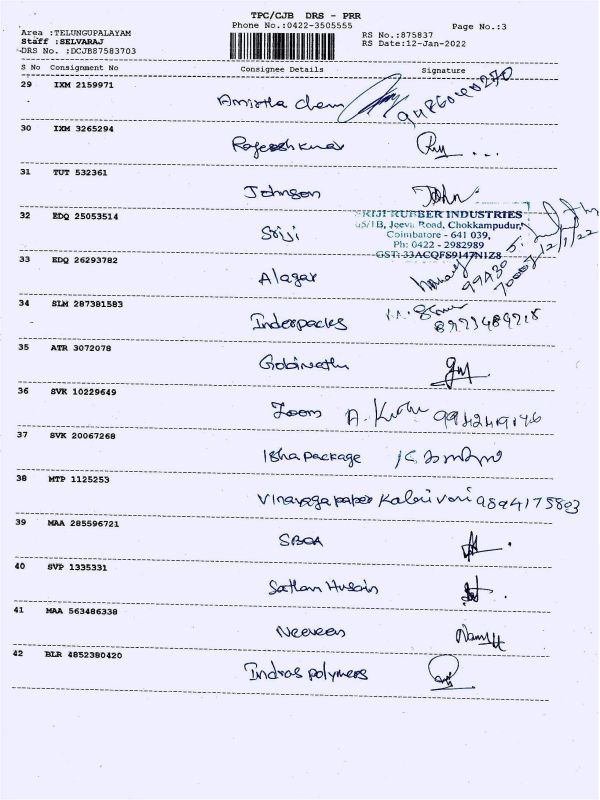 TPC/CJB DRS - PRR
Phone No.:0422-3505555
Page No.:3
Area :TELUNGUPALAYAM
Staff :SELVARAJ
DRS No. :DCJB87583703
RS No.:875837
RS Date:12-Jan-2022
S No Consignment No Consignee Details Signature
29 IXM 2159971
Amirtha Chem
30 IXM 3265294
Rajesh Kumar
31 TUT 532361
Johnson John
32 EDQ 25053514
Sriji
SRIJI RUBBER INDUSTRIES
65/1B, Jeeva Road, Chokkampudur,
Coimbatore - 641 039,
Ph: 0422 - 2982989
GST: 33ACQFS9147N1Z8
12/1/22
33 EDQ 26293782
Alagar
99430
34 SLM 287381583
Inderpacks
35 ATR 3072078
36 SVK 10229649
Zoom
37 SVK 20067268
Isha package
38 MTP 1125253
Vinayaga paper Kalaivani 9894175803
39 MAA 285596721
40 SVP 1335331
Sathan Husain
41 MAA 563486338
Naeveen
42 BLR 4852380420
Indras polymers